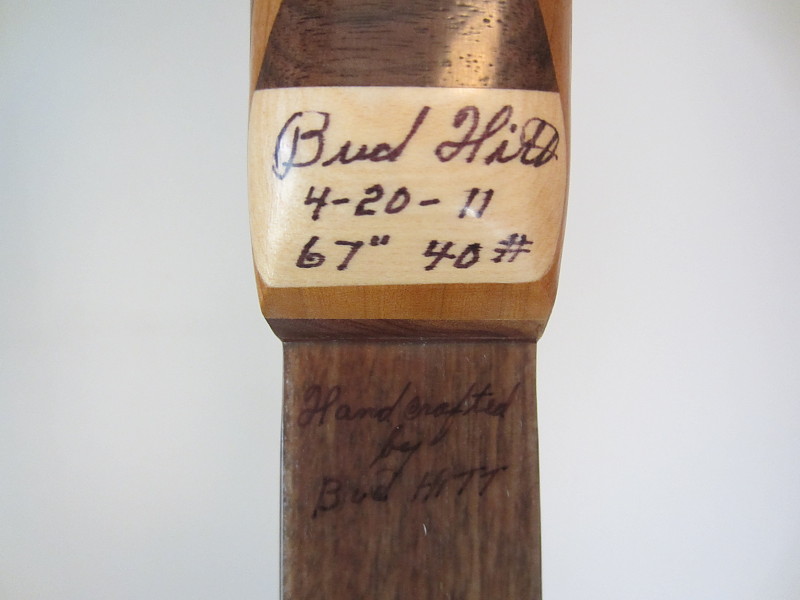 Bud Hitt
4-20-11
67" 40#
Handcrafted
by
Bud HiTT